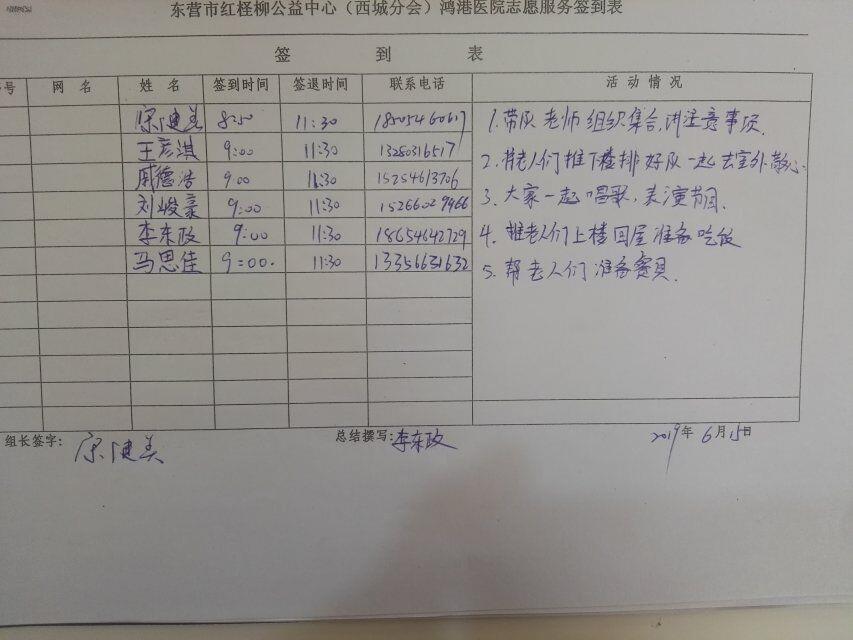 东营市红柽柳公益中心（西城分会）鸿港医院志愿服务签到表
签 到 表
号 网 名 姓 名 签到时间 签退时间 联系电话 活 动 情 况
宋建美 8:50 11:30 18505460617
王彦淇 9:00 11:30 13280316517
戚德浩 9:00 11:30 15254613706
刘峻豪 9:00 11:30 15266029966
李东政 9:00 11:30 18654642729
马思佳 9:00. 11:30 13356631632
1. 带队老师组织集合,讲注意事项.
2. 帮老人们推下楼排好队一起去室外散心.
3. 大家一起唱歌,表演节目.
4. 推老人们上楼回屋准备吃饭
5. 帮老人们准备餐具.
组长签字: 宋建美 总结撰写: 李东政 2019年6月15日